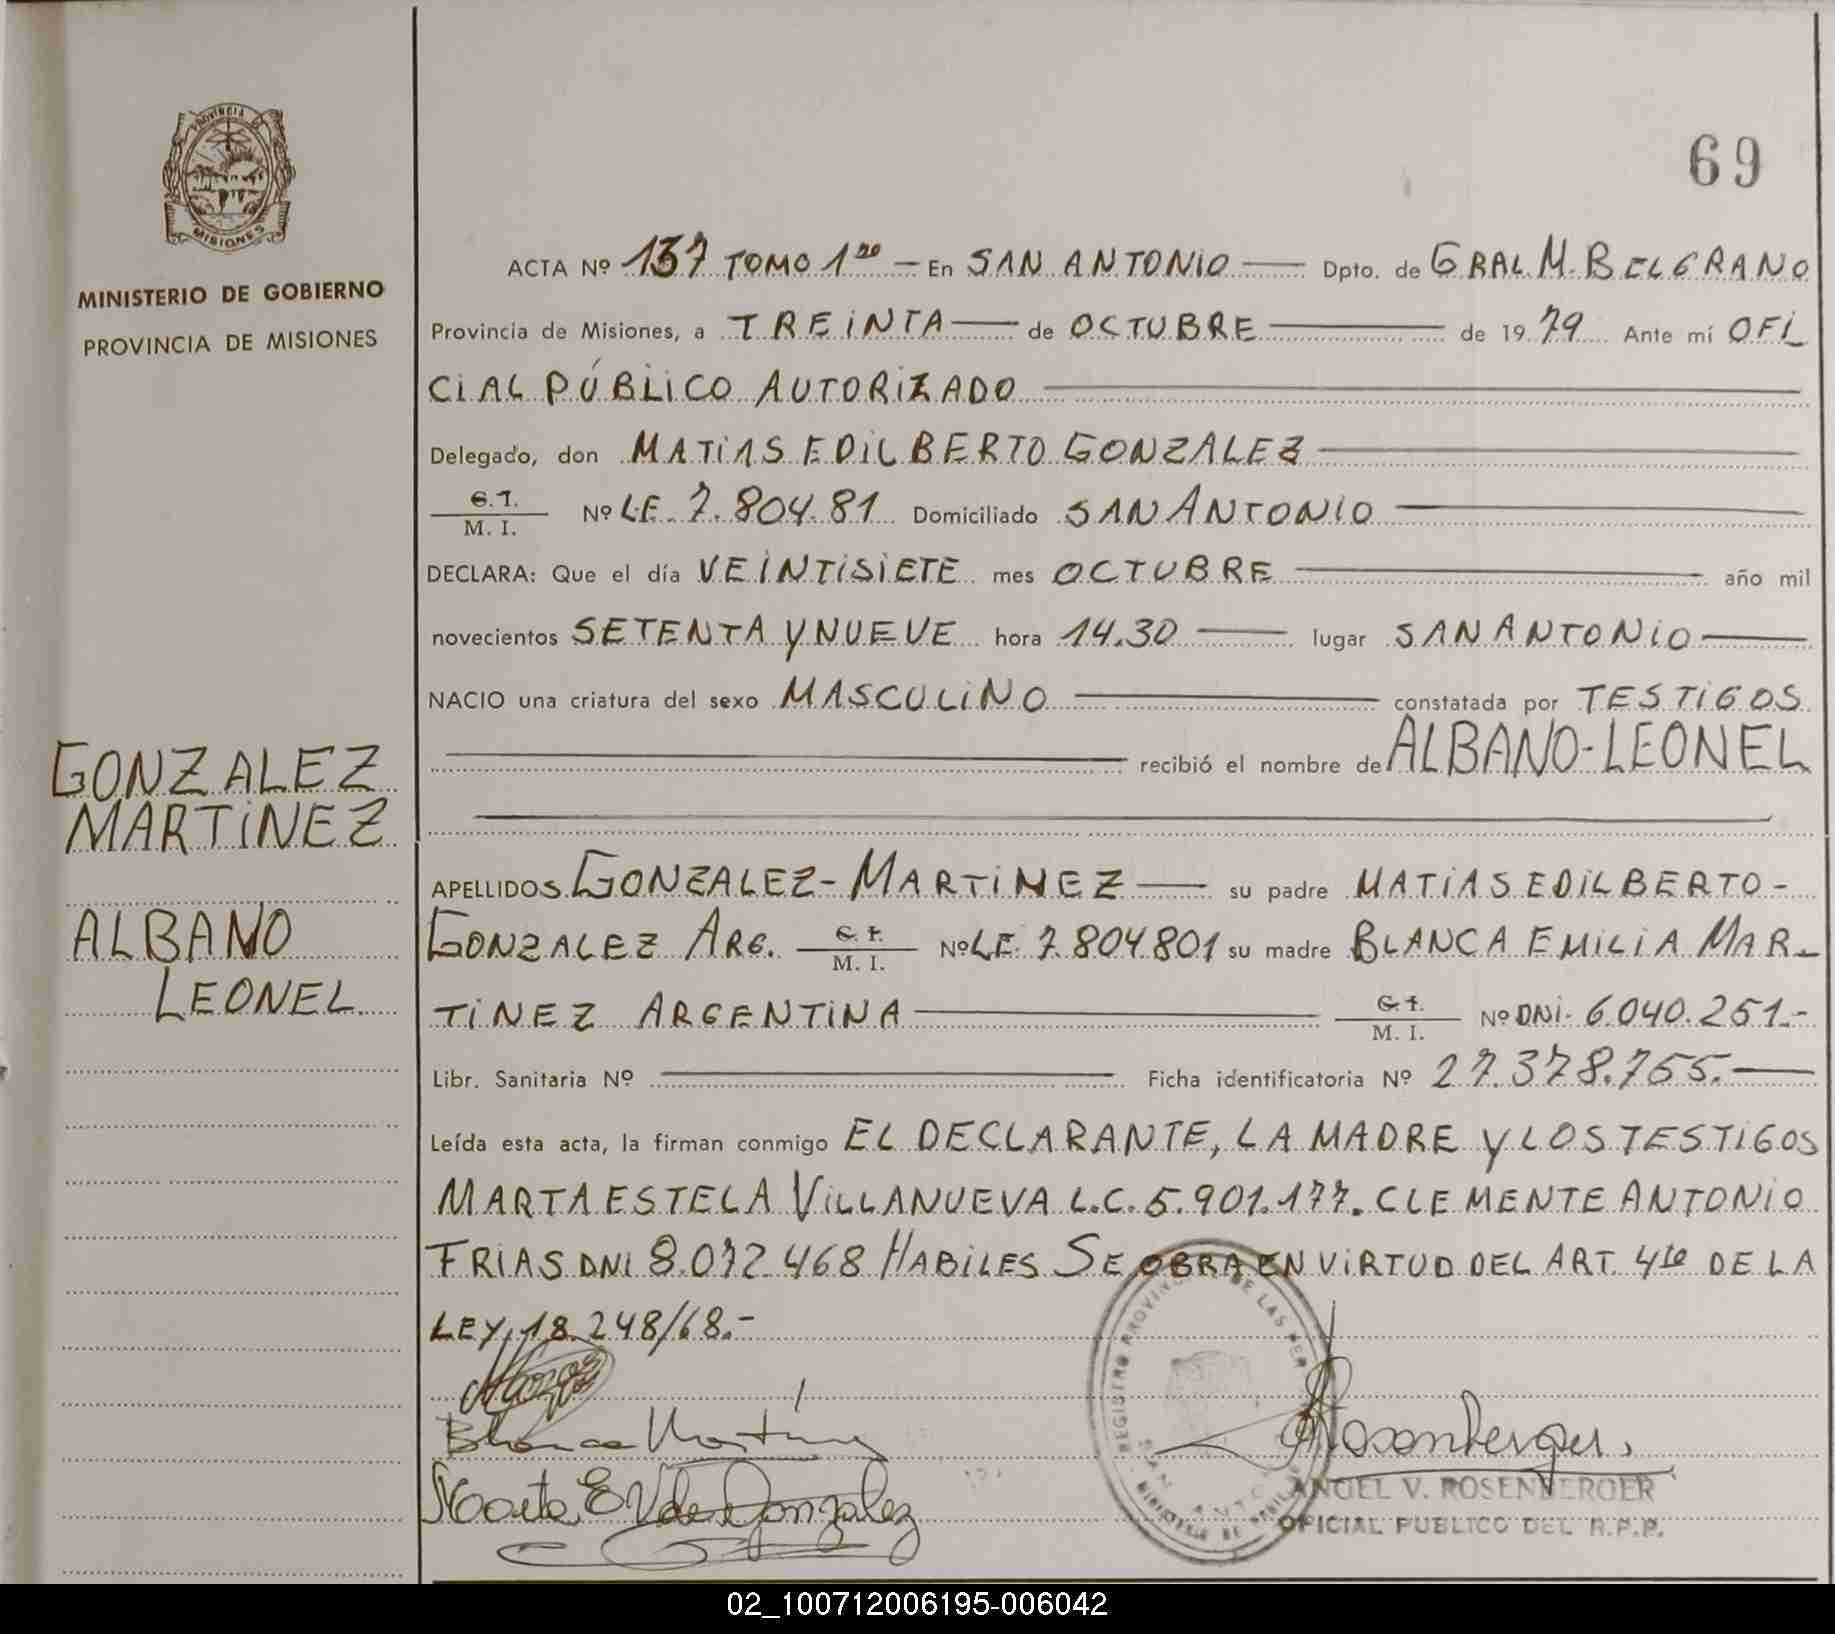 PROVINCIA DE
MISIONES
MINISTERIO DE GOBIERNO
PROVINCIA DE MISIONES
GONZALEZ
MARTINEZ
ALBANO
LEONEL
69
ACTA Nº 137 TOMO 1ro — En SAN ANTONIO — Dpto. de GRAL M. BELGRANO
Provincia de Misiones, a TREINTA — de OCTUBRE — de 1979 Ante mí OFI
CIAL PÚBLICO AUTORIZADO —
Delegado, don MATIAS EDILBERTO GONZALEZ —
C.I. M. I. Nº LE. 7.804.81 Domiciliado SAN ANTONIO —
DECLARA: Que el día VEINTISIETE mes OCTUBRE — año mil
novecientos SETENTA Y NUEVE hora 14.30 — lugar SAN ANTONIO —
NACIO una criatura del sexo MASCULINO — constatada por TESTIGOS
— recibió el nombre de ALBANO-LEONEL
APELLIDOS GONZALEZ-MARTINEZ — su padre MATIAS EDILBERTO-
GONZALEZ ARG. — C.I. M. I. Nº LE 7.804801 su madre BLANCA EMILIA MAR-
TINEZ ARGENTINA — C.I. M. I. Nº DNI. 6.040.251.-
Libr. Sanitaria Nº — Ficha identificatoria Nº 27.378.755.—
Leída esta acta, la firman conmigo EL DECLARANTE, LA MADRE Y LOS TESTIGOS
MARTA ESTELA VILLANUEVA L.C. 5.901.177. CLEMENTE ANTONIO
FRIAS DNI 8.072.468 HABILES SE OBRA EN VIRTUD DEL ART. 4to DE LA
LEY, 18.248/68.-
Blanca Martinez
Marta E V de Gonzalez
Rosenberger.
ANGEL V. ROSENBERGER
OFICIAL PUBLICO DEL R.P.P.
REGISTRO PROVINCIAL DE LAS PER
SAN ANTONIO
02_100712006195-006042